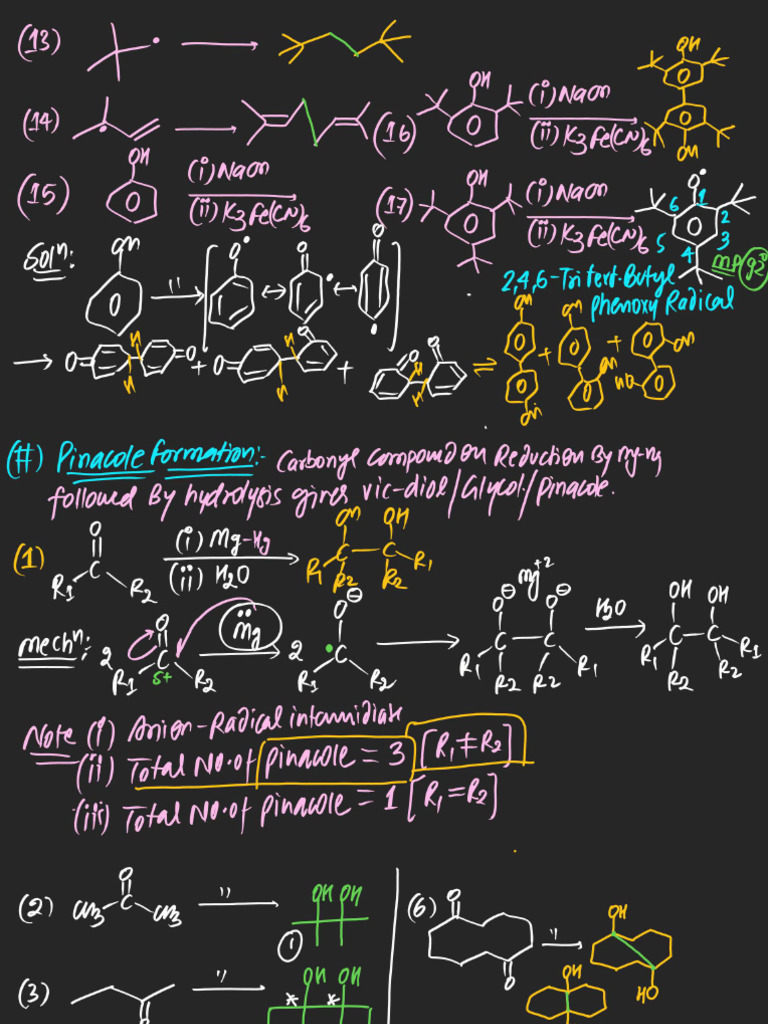 (13)
(14)
(16) OH (i) NaOH
(ii) K3Fe(CN)6
OH
OH
(15) OH (i) NaOH
(ii) K3Fe(CN)6
(17) OH (i) NaOH
(ii) K3Fe(CN)6
O•
6 1 2
5 4 3
mp 93°
Solⁿ: OH " [ O• ↔ O • ↔ O • ]
2,4,6-Tri tert-Butyl
phenoxy Radical
→ O= H H =O + O= H H O + O H H O ⇌ OH OH + OH OH + OH HO
(#) Pinacole formation:- Carbonyl compound on Reduction By Mg-Hg
followed By hydrolysis gives vic-diol/Glycol/pinacole.
(1) O R1 C R2 (i) Mg-Hg
(ii) H2O
OH OH
R1 C — C R1
R2 R2
Mechⁿ: 2 O R1 C R2 δ+ Mg 2 O⊖ • C R1 R2
O⊖ Mg+2 O⊖
R1 C — C R1
R2 R2
H2O
OH OH
R1 C — C R1
R2 R2
Note (i) Anion-Radical intermidiate
(ii) Total No. of pinacole = 3 [R1 ≠ R2]
(iii) Total No. of pinacole = 1 [R1 = R2]
(2) O CH3 C CH3 " OH OH
1
(6) O O " OH HO
OH
(3) O " OH OH
* *